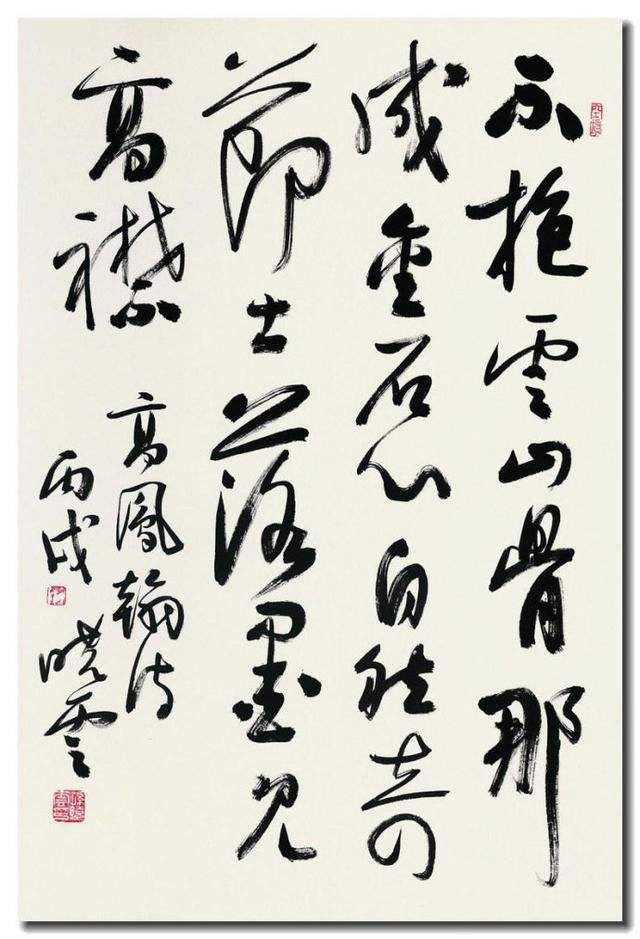 不抱雲山骨那
成金石心自然奇
節士落墨見
高襟
高鳳翰詩
丙戌
曉雲